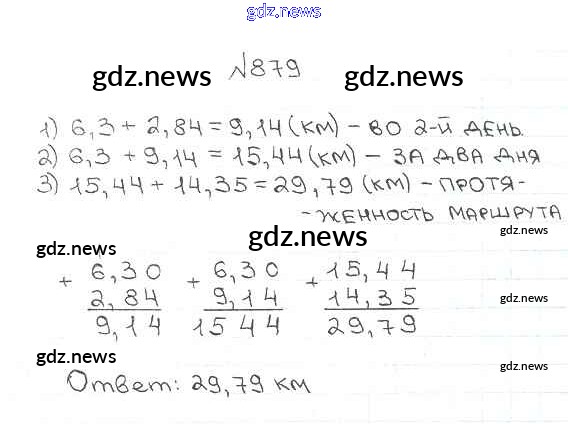 gdz.news
№879
gdz.news gdz.news
1) 6,3 + 2,84 = 9,14 (км) – во 2-й день.
2) 6,3 + 9,14 = 15,44 (км) – за два дня
3) 15,44 + 14,35 = 29,79 (км) – протя-
- женность маршрута
gdz.news gdz.news gdz.news
+ 6,30 + 6,30 + 15,44
2,84 9,14 14,35
9,14 15 44 29,79
gdz.news
gdz.news gdz.news
Ответ: 29,79 км